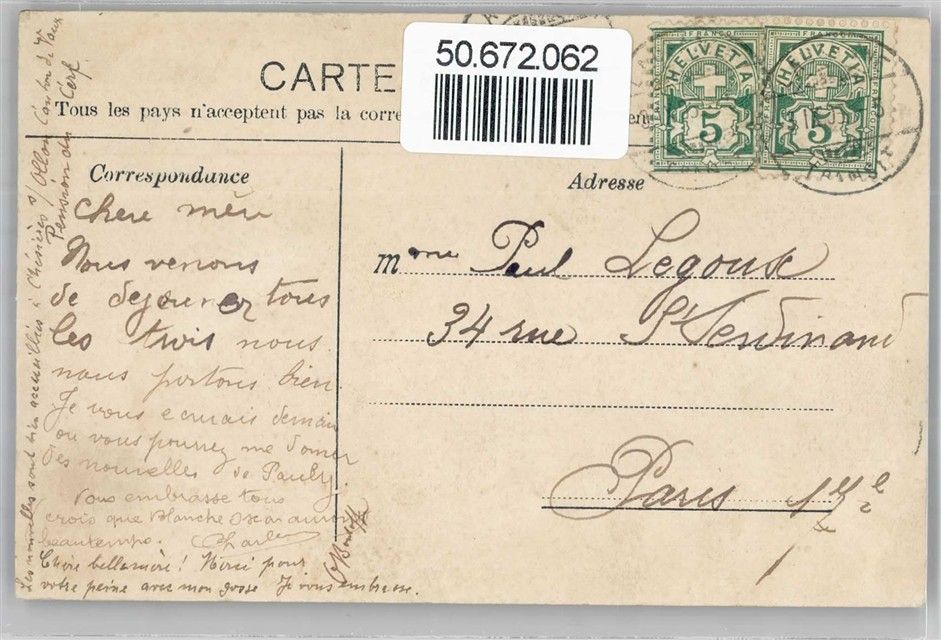 50.672.062
CARTE
Tous les pays n'acceptent pas la corre
FRANCO
HELVETIA
5
FRANCO
HELVETIA
5
Correspondance
Adresse
Chere mère
Nous venons
de dejeuner tous
les trois nous
nous portons bien
Je vous ecrirais demain
ou vous pourrez me donner
des nouvelles de Paul
Vous embrasse tous
crois que Blanche Oscar auront
beautemps. Charles
Chère bellemère! Merci pour
votre peine avec mon gosse Je vous embrasse.
Les nouvelles sont bien accueillies à Chésières s/Ollon Canton de Vaud
Pension du Cerf
Mme Paul Legoux
34 rue St Ferdinand
Paris 17e